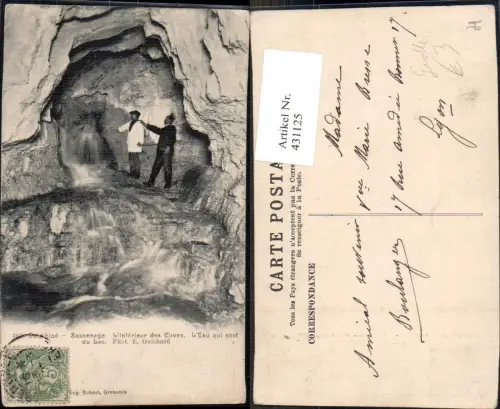 Dauphiné – Sassenage. L'intérieur des Cuves. L'Eau qui sort
du Lac. Phot. E. Guichard
Eug. Robert, Grenoble
Artikel Nr.
431125
CARTE POSTA
Tous les Pays étrangers n'acceptent pas la Corre
Se renseigner à la Poste.
CORRESPONDANCE
Madame
Vve Marie Besse
17 Rue amédée Bonnet 17
Lyon
Amical souvenir
Boulanger